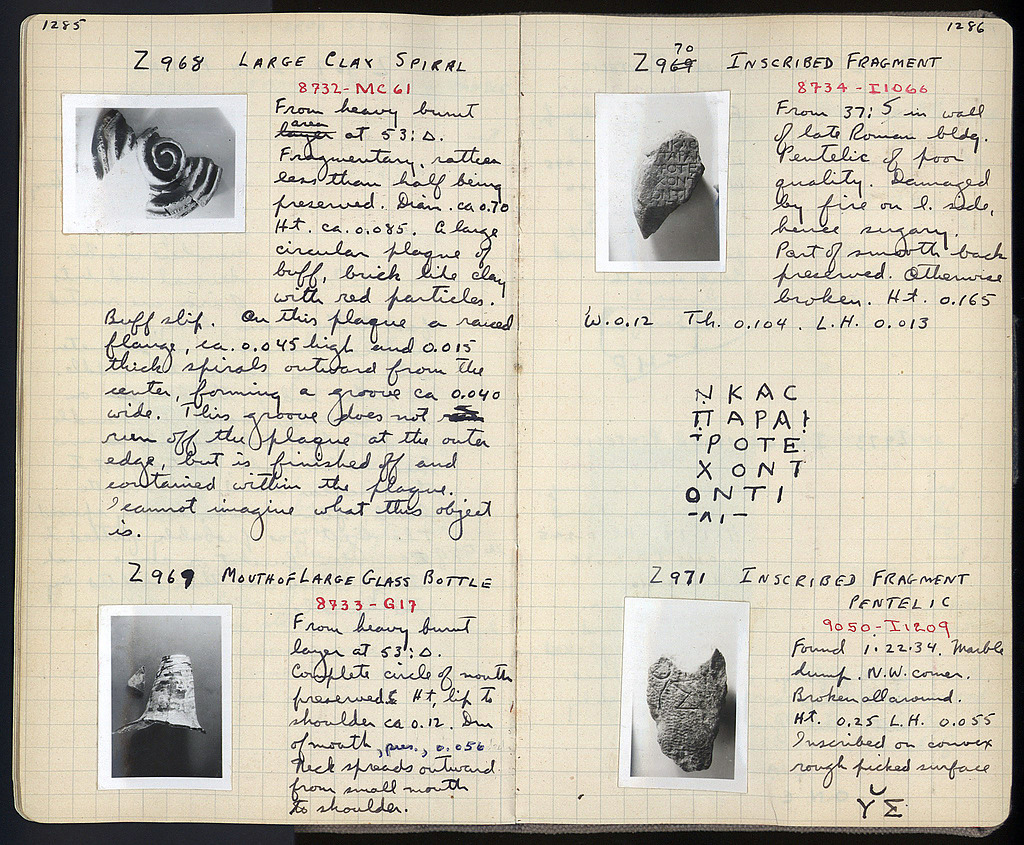 1285
Z 968 LARGE CLAY SPIRAL
8732-MC 61
From heavy burnt
area
layer at 53:Δ.
Fragmentary, rather
less than half being
preserved. Diam. ca 0.70
Ht. ca. 0.085. A large
circular plaque of
buff, brick like clay
with red particles.
Buff slip. On this plaque a raised
flange, ca. 0.045 high and 0.015
thick spirals outward from the
center, forming a groove ca 0.040
wide. This groove does not
run off the plaque at the outer
edge, but is finished off and
contained within the plaque.
I cannot imagine what this object
is.
Z 969 MOUTH OF LARGE GLASS BOTTLE
8733-G17
From heavy burnt
layer at 53:Δ.
Complete circle of mouth
preserved. Ht, lip to
shoulder ca 0.12. Dm
of mouth, pres., 0.056
Neck spreads outward
from small mouth
to shoulder.
1286
70
Z 969 INSCRIBED FRAGMENT
8734-I1066
From 37:5 in wall
of late Roman bldg.
Pentelic of poor
quality. Damaged
by fire on l. side,
hence sugary.
Part of smooth back
preserved. Otherwise
broken. Ht. 0.165
W. 0.12 Th. 0.104. L.H. 0.013
ΝΚΑC
ΠΑΡΑΙ
ΤΡΟΤΕ
ΧΟΝΤ
ΟΝΤΙ
-ΛΙ-
Z 971 INSCRIBED FRAGMENT
PENTELIC
9050-I1209
Found 1.22.34. Marble
dump. N.W. corner.
Broken all around.
Ht. 0.25 L.H. 0.055
Inscribed on convex
rough picked surface
ΥΣ